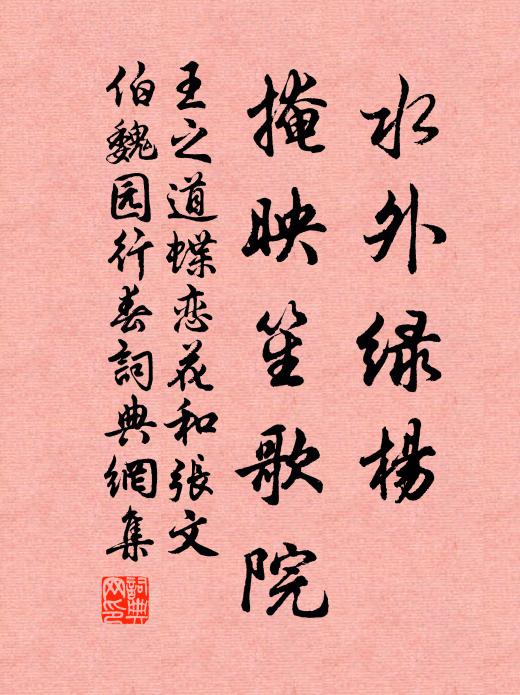 水外绿杨
掩映笙歌院
王之道蝶恋花和張文
伯魏园行春詞典網集
詞典网印